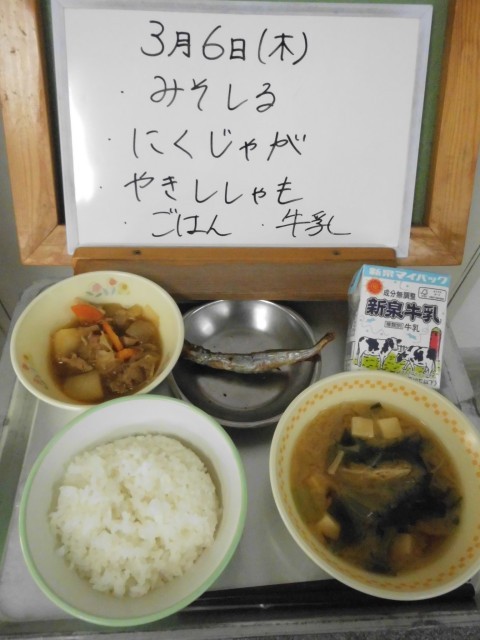 3月6日(木)
・みそしる
・にくじゃが
・やきししゃも
・ごはん ・牛乳
新泉マイパック
成分無調整
新泉牛乳
種類別 牛乳